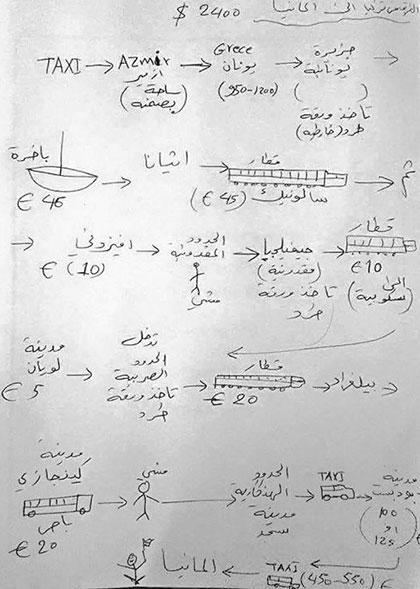 تركيا الى المانيا $ 2400
TAXI AZmir ازمير (ساحة بصمنه)
Grece يونان (950-1200)
جزيرة يونانية ( ) تأخذ ورقة طرد (خارطة)
باخرة € 45
اثيانا
قطار سالونيك (€ 45)
ثم
افيزوني € (10)
الحدود المقدونية مشي
جيفيليجيا (مقدونية) تأخذ ورقة طرد
قطار €10 الى (سكوبية)
مدينة لويان € 5
تدخل الحدود الصربية تأخذ ورقة طرد
قطار € 20
بيلغراد
مدينة كينجازي باص € 20
مشي
الحدود الهنكارية مدينة
TAXI
مدينة بودبست (100 او 125)
€ TAXI (450-550)
المانيا